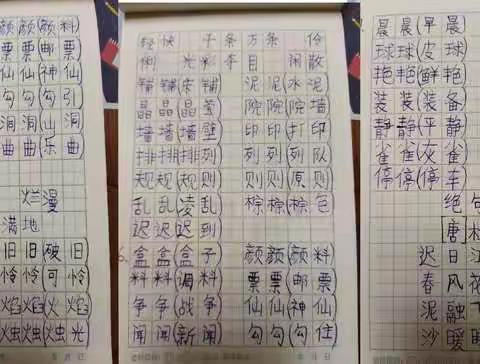 颜颜(颜料)
票票(邮票)
仙仙(神仙)
勾勾(勾引)
洞洞(山洞)
曲曲(乐曲)
烂漫
满地
旧旧(破旧)
怜怜(可怜)
焰焰(火焰)
烛烛(烛光)
轻快 千条万条 伶
俐 光彩夺目 闲散
铺铺(床铺) 泥泥(水泥)
晶晶(晶莹) 院院(院墙)
墙墙(墙壁) 印印(打印)
排排(排列) 列列(列队)
规规(规则) 则则(原则)
乱乱(凌乱) 棕棕(棕色)
迟迟(迟到)
盒盒(盒子) 颜颜(颜料)
料料(调料) 票票(邮票)
争争(战争) 仙仙(神仙)
闻闻(新闻) 勾勾(勾住)
晨晨(早晨)
球球(皮球)
艳艳(鲜艳)
装装(装备)
静静(平静)
雀雀(灰雀)
停停(停车)
绝句
[唐]杜
迟日江
春风花
泥融飞
沙暖